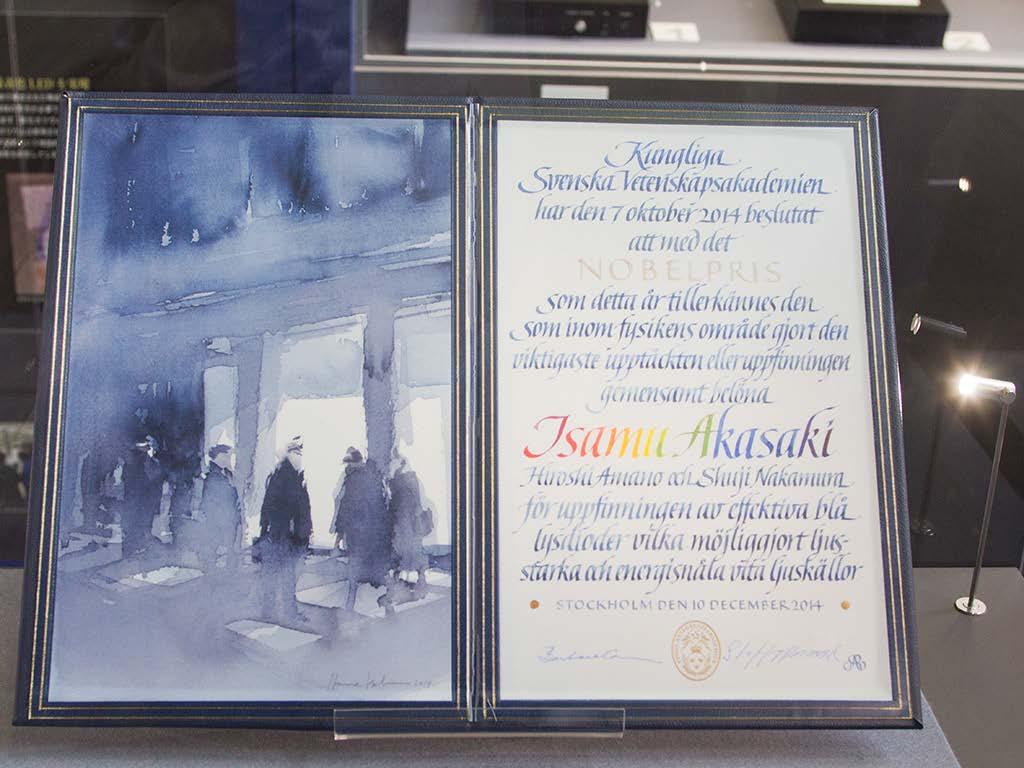 Kungliga
Svenska Vetenskapsakademien
har den 7 oktober 2014 beslutat
att med det
NOBELPRIS
som detta år tillerkännes den
som inom fysikens område gjort den
viktigaste upptäckten eller uppfinningen
gemensamt belöna
Isamu Akasaki
Hiroshi Amano och Shuji Nakamura
för uppfinningen av effektiva blå
lysdioder vilka möjliggjort ljus-
starka och energisnåla vita ljuskällor
STOCKHOLM DEN 10 DECEMBER 2014
2014
2